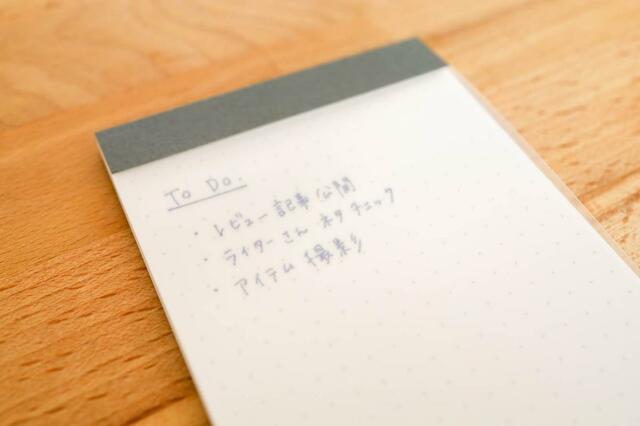 To Do.
・レビュー記事公開
・ライターさん ネタチェック
・アイテム撮影